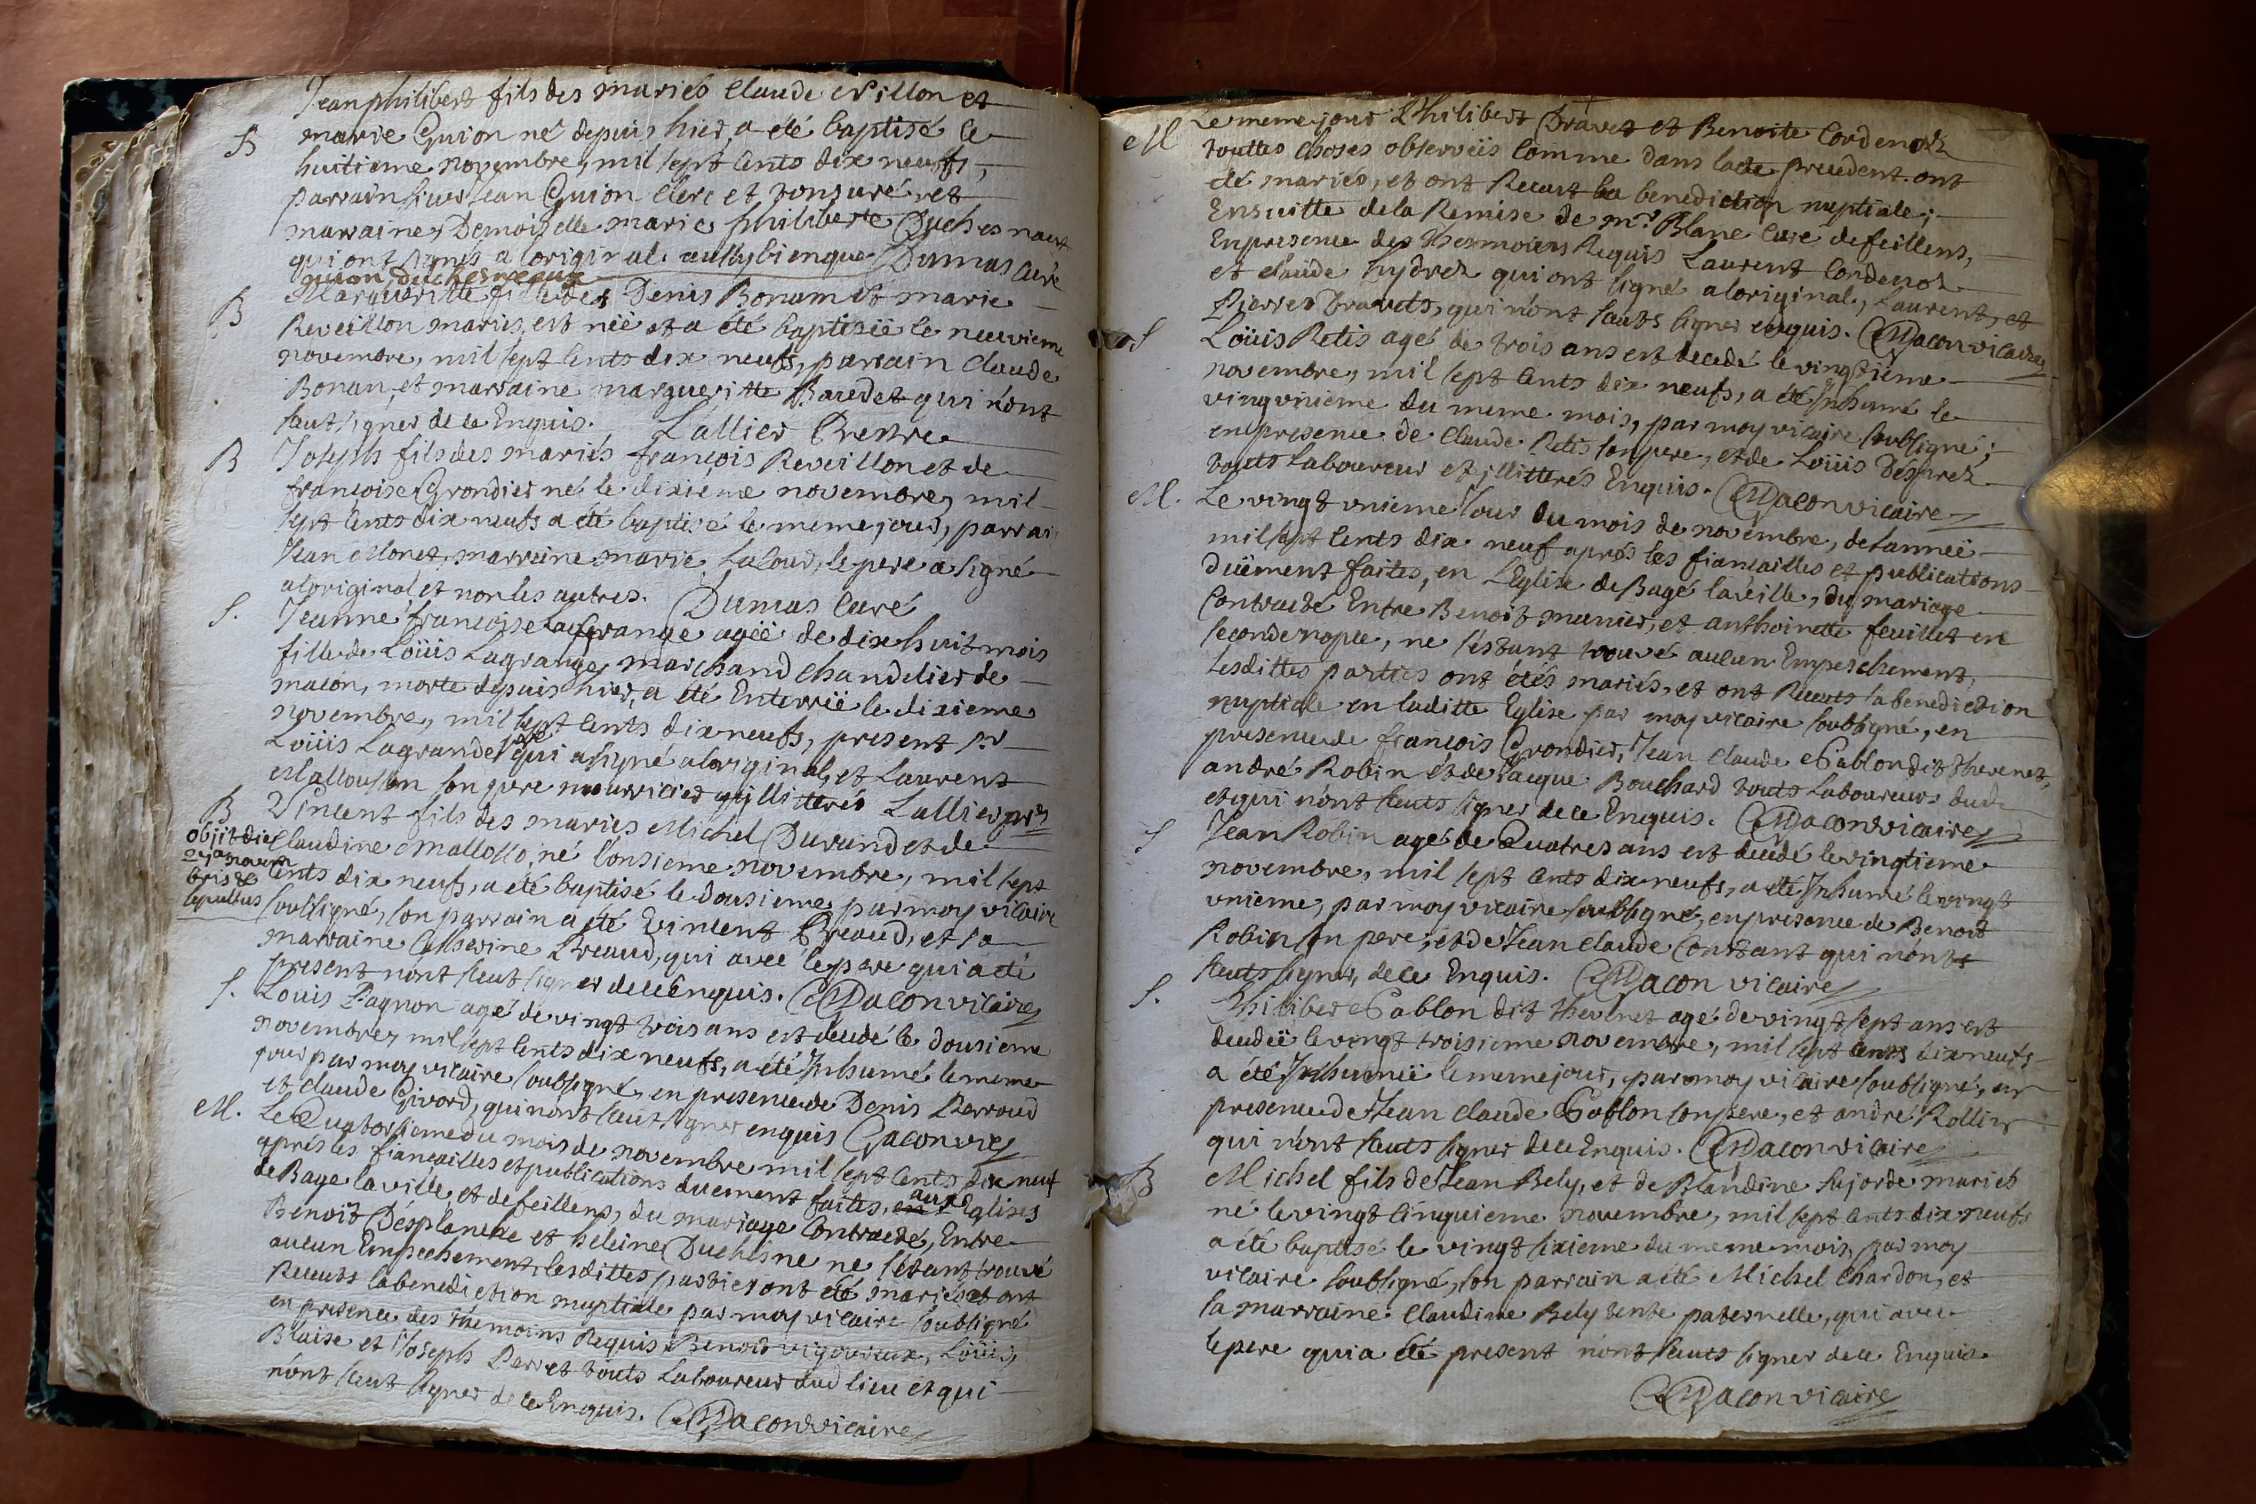 Jean philibert fils des mariés Claude Villon et
B marie Guion né depuis hier, a été baptisé le
huitieme novembre, mil sept cents dix neufs,
parrain sieur Jean Guion Clerc et tonsuré et
marraine, Demoiselle marie philiberte Duchesnaut
qui ont signés a loriginal aussy bien que Dumas Curé
guion, duchesneaux
B Margueritte fille des Denis Bonam et marie
Reveillon mariés, est néé et a été baptiséé le neuvieme
novembre, mil sept cents dix neufs, parrain Claude
Bonan, et marraine margueritte Baudet qui n'ont
sceut signer de ce Enquis. Lallier Prettre
B Joseph fils des mariés françois Reveillon et de
françoise Grondier né le dixieme novembre, mil
sept cents dix neufs a été baptisé le meme jour, parrai
Jean Monet, marraine marie Laloud, le pere a signé
a loriginal et non les autres. Dumas Curé
S. Jeanne françoise Lagrange agéé de dix huit mois
fille de Loüis Lagrange, marchand chandelier de
macon, morte depuis hier, a été Enterréé le dixieme
novembre, mil sept cents dix neufs, present Sr
Loüis Lagrande pere qui a signé a loriginal, et Laurent
Mallousson son pere nourricier qui illitterés Lallier pre
B Vincent fils des mariés Michel Durand et de
objit die Claudine Mallosso, né l'onsieme novembre, mil sept
27a novem cents dix neufs, a été baptisé le dousieme par moy vicaire
bris &
sepultus soubsigné, son parrain a été Vincent Breaud, et sa
marraine Catherine Breaud, qui avec le pere qui a été
present n'ont sceut signer de ce Enquis. Dacon vicaire
S. Louis Pagnon agé de vingt trois ans est decedé le dousieme
novembre, mil sept cents dix neufs, a été Inhumé le meme
jour par moy vicaire soubsigné, en presence de Denis Perroud
et claude Givord, qui n'ont sceut signer enquis Dacon vic
M. Le Quatorsieme du mois de novembre mil sept cents dix neuf
aprés les fiançailles et publications duement faites, en aux Eglises
de Bage la ville, et de feillens, du mariage Contracté, Entre
Benoit Desplanche et heleine Duchesne ne s'étant trouvé
aucun Empechement, lesdittes parties ont été mariés et ont
Receuts la benediction nuptiale par moy vicaire soubsigné
en presence des themoins Requis Benoit vigouroux, Loüis
Blaise et Joseph Perret touts Laboureur dud lieu et qui
n'ont sceut signer de ce Enquis. Dacon vicaire
M Le meme jour Philibert Dravet et Benoite Cordenoz
touttes choses observéis Comme dans lacte precedent ont
été mariés, et ont Receut la benediction nuptiale,
Ensuitte de la Remise de mr. Blanc Curé de feillens,
En presence des themoiens Requis Laurent Condenoz
et claude hydrez qui ont signé a loriginal, Laurent, et
Pierre Dravets, qui n'ont sceuts signer enquis. Dacon vicaire
S Loüis Retis agé de trois ans est decedé le vingtiéme
novembre, mil sept cents dix neufs, a été Inhumé le
vingt unieme du meme mois, par moy vicaire soubsigné;
en presence de Claude Retis son pere, et de Loüis Desprez
touts Laboureur et jllitterés Enquis. Dacon vicaire
M. Le vingt unieme Jour du mois de novembre, de lannéé
mil sept cents dix neuf aprés les fiançailles et publications
düement faites, en L'Eglise de Bagé la ville, du mariage
Contracté Entre Benoit munier, et anthoinette feuillet en
seconde nopce, ne s'estant trouvé aucun Empeschement,
Lesdittes parties ont étés mariés, et ont Receuts la benediction
nuptiale en laditte Eglise par moy vicaire soubsigné, en
presence de françois Grondier, Jean Claude Pablon dit thevenet,
andré Robin et de Jacque Bouchard touts Laboureurs dud
et qui n'ont sceuts signer de ce Enquis. Dacon vicaire
S Jean Robin agé de Quatres ans est decedé le vingtieme
novembre, mil sept cents dix neufs, a été Inhumé le vingt
unieme, par moy vicaire soubsigné, en presence de Benoit
Robin son pere, et de Jean Claude Constant qui n'ont
sceuts signer, de ce Enquis. Dacon vicaire
S. Philiber Pablon dit thevenet agé de vingt sept ans est
decedéé le vingt troisieme novembre, mil sept cents dix neufs
a été Inhuméé le meme jour, par moy vicaire soubsigné, en
presence de Jean Claude Pablon son pere, et andré Rollin
qui n'ont sceuts signer de ce Enquis. Dacon vicaire
B Michel fils de Jean Bely, et de Blandine Sujorde mariés
né le vingt cinquieme novembre, mil sept cents dix neufs
a été baptisé le vingt sixieme du meme mois, par moy
vicaire soubsigné, son parrain a été Michel Chardon, et
sa marraine Claudine Bely tente paternelle, qui avec
le pere qui a été present n'ont sceuts signer de ce Enquis.
Dacon vicaire